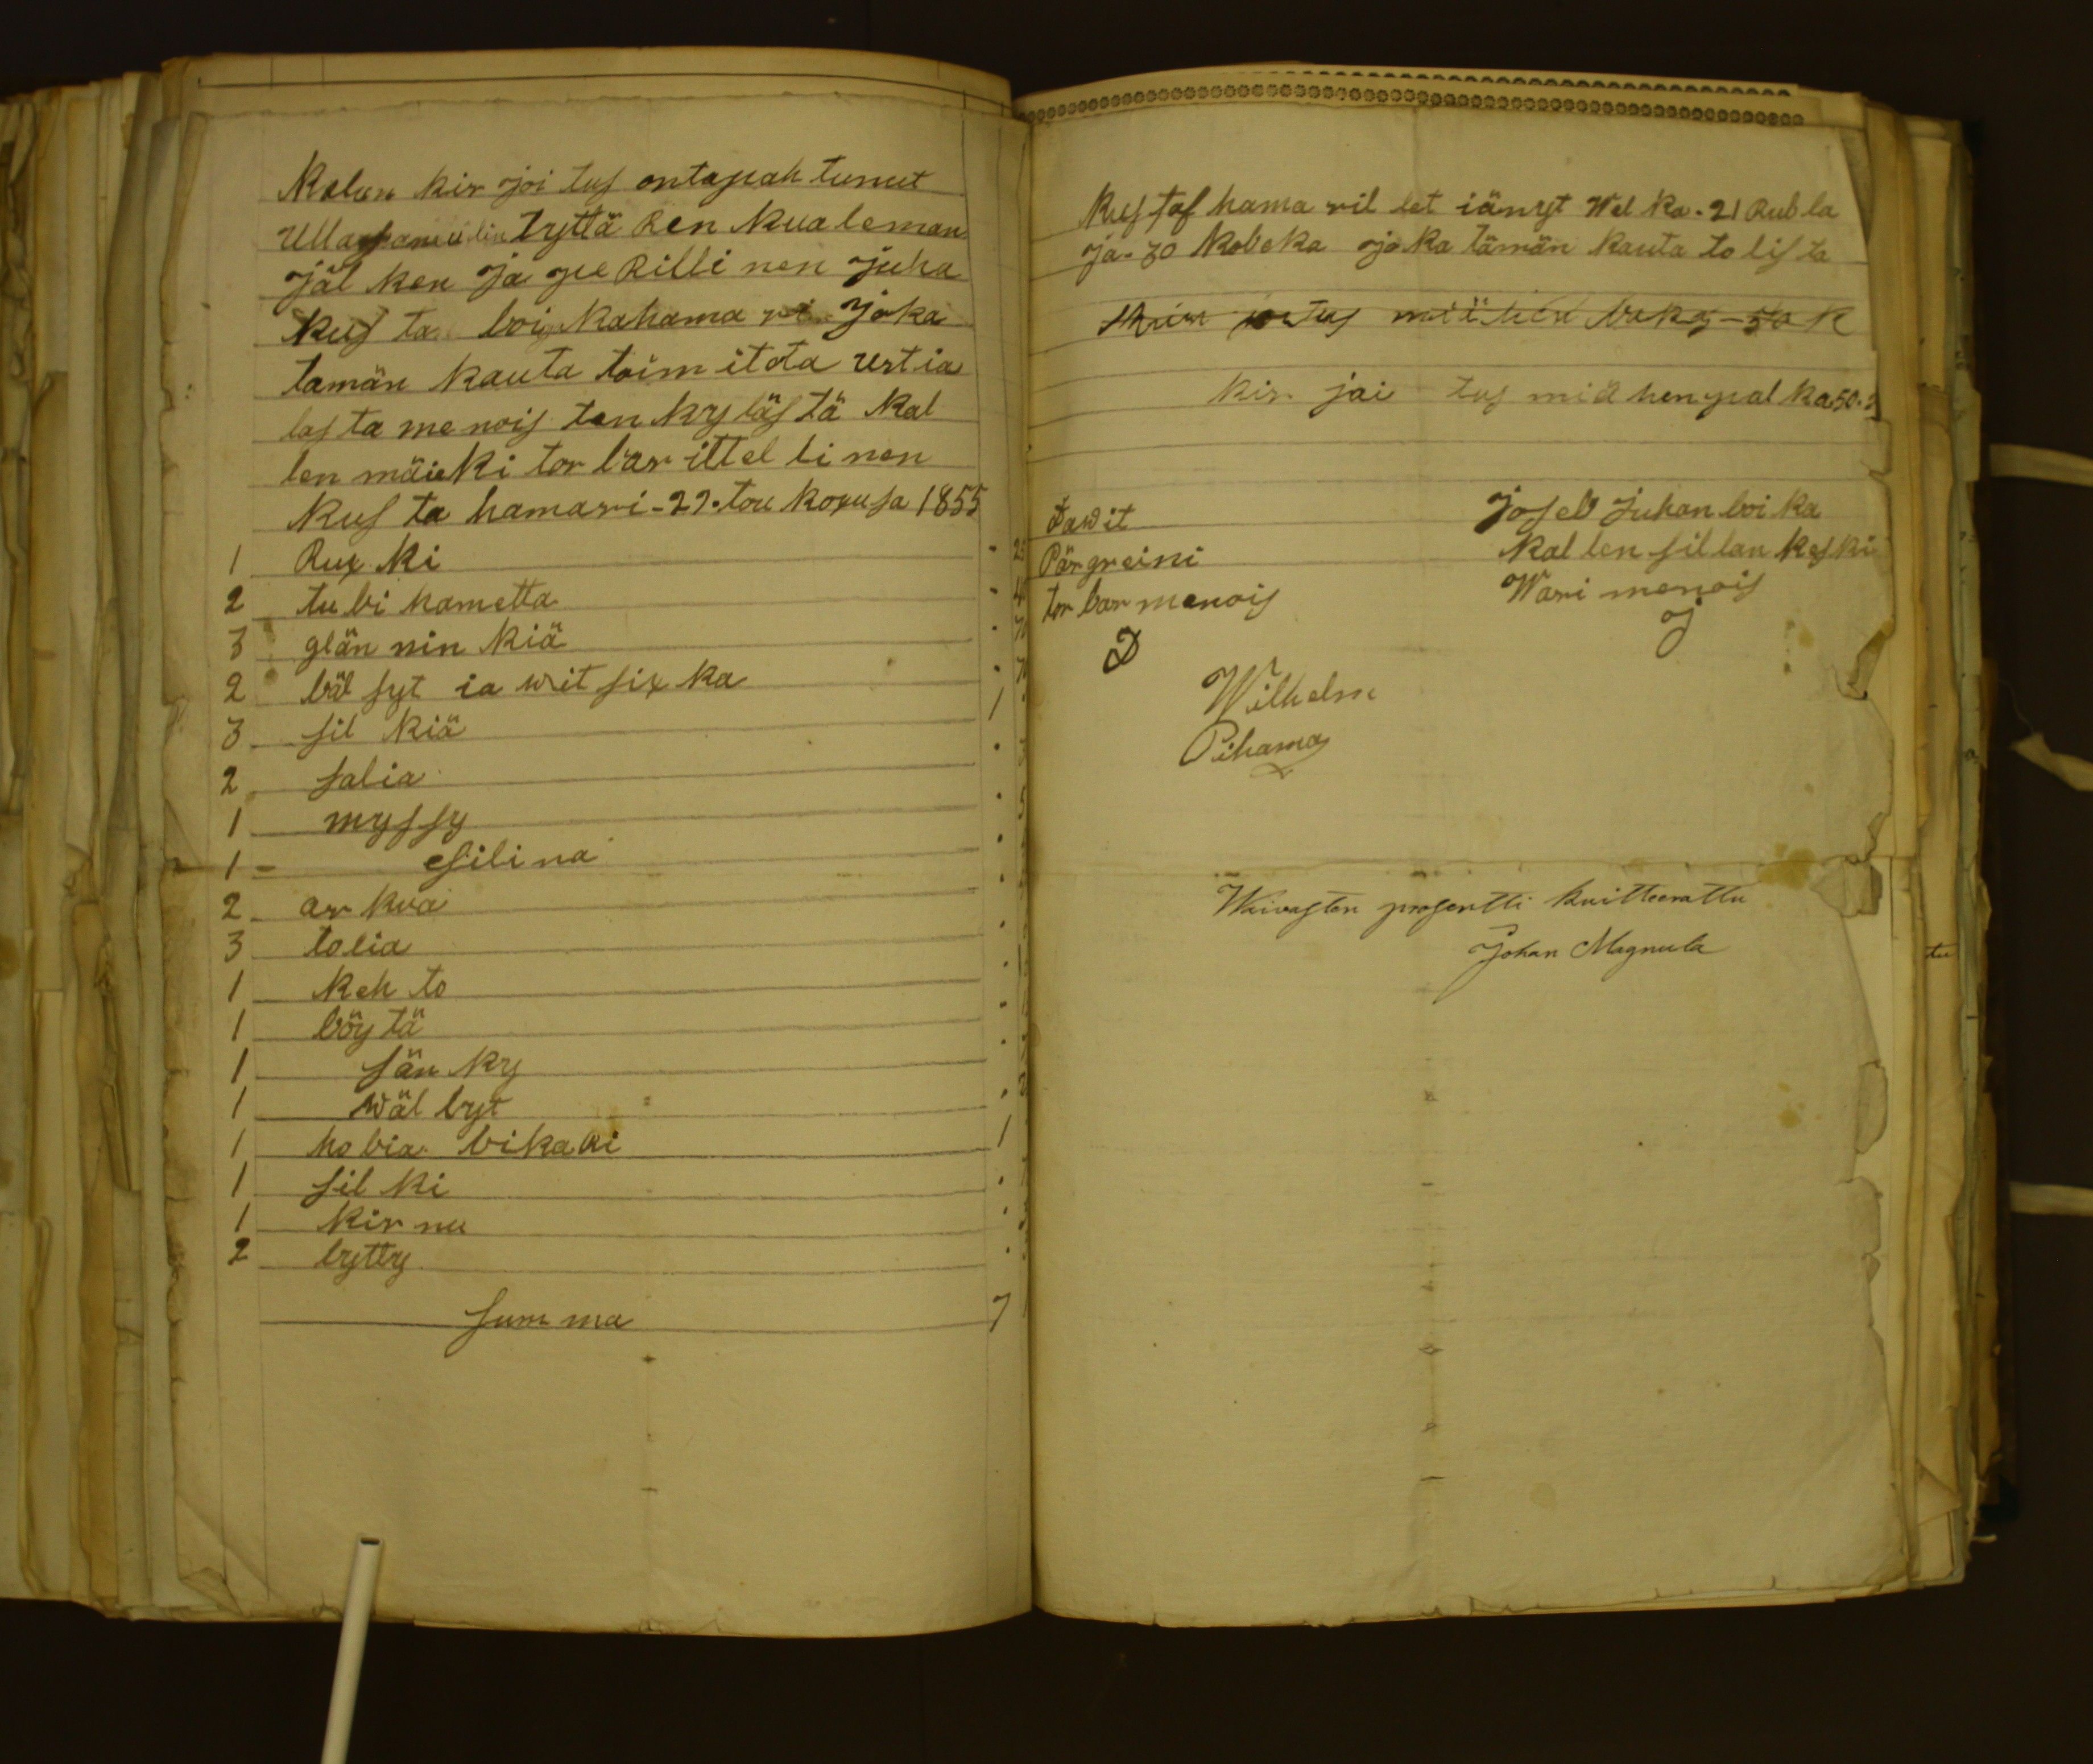 Kalun kir joi tus ontapah tunut
Ulla Lyttä Ren Kua leman
jäl ken ja pe Rilli nen juha
Kus ta boi Kahama ri joka
tamän kauta toim itota Ustia
las ta me nois ten kyläs tä Kal
len mäieki tor bar ittel li nen
Kus ta hamari - 29. tou kokusa 1855
1 Rux ki
2 tu bi hametta
3 glän nin kiä
2 bäl syt ia wit six ka
3 sil kiä
2 salia
1 myssy
1 - esilina
2 ar kua
3 tolia
1 keh to
1 böy tä
1 sän ky
1 wäl lyt
1 ho bia bikaRi 1
1 sil ki
1 kir nu
2 lytty
sum ma 7
Kustaf hama ril let iänyt Wel ka. 21 Rub la
ja. 30 kobeka jo ka tämän kauta to lis ta
kir joi tus miä hen pal ka 50.
Dawit
Pärgreini
tor bar menois
D
Joseb Juhan boi ka
Kal len sil lan kes ki
Wari menois
J
Wilhelm
Pihama
Waivasten prosentti kuitteerattu
Johan Magnula
tu